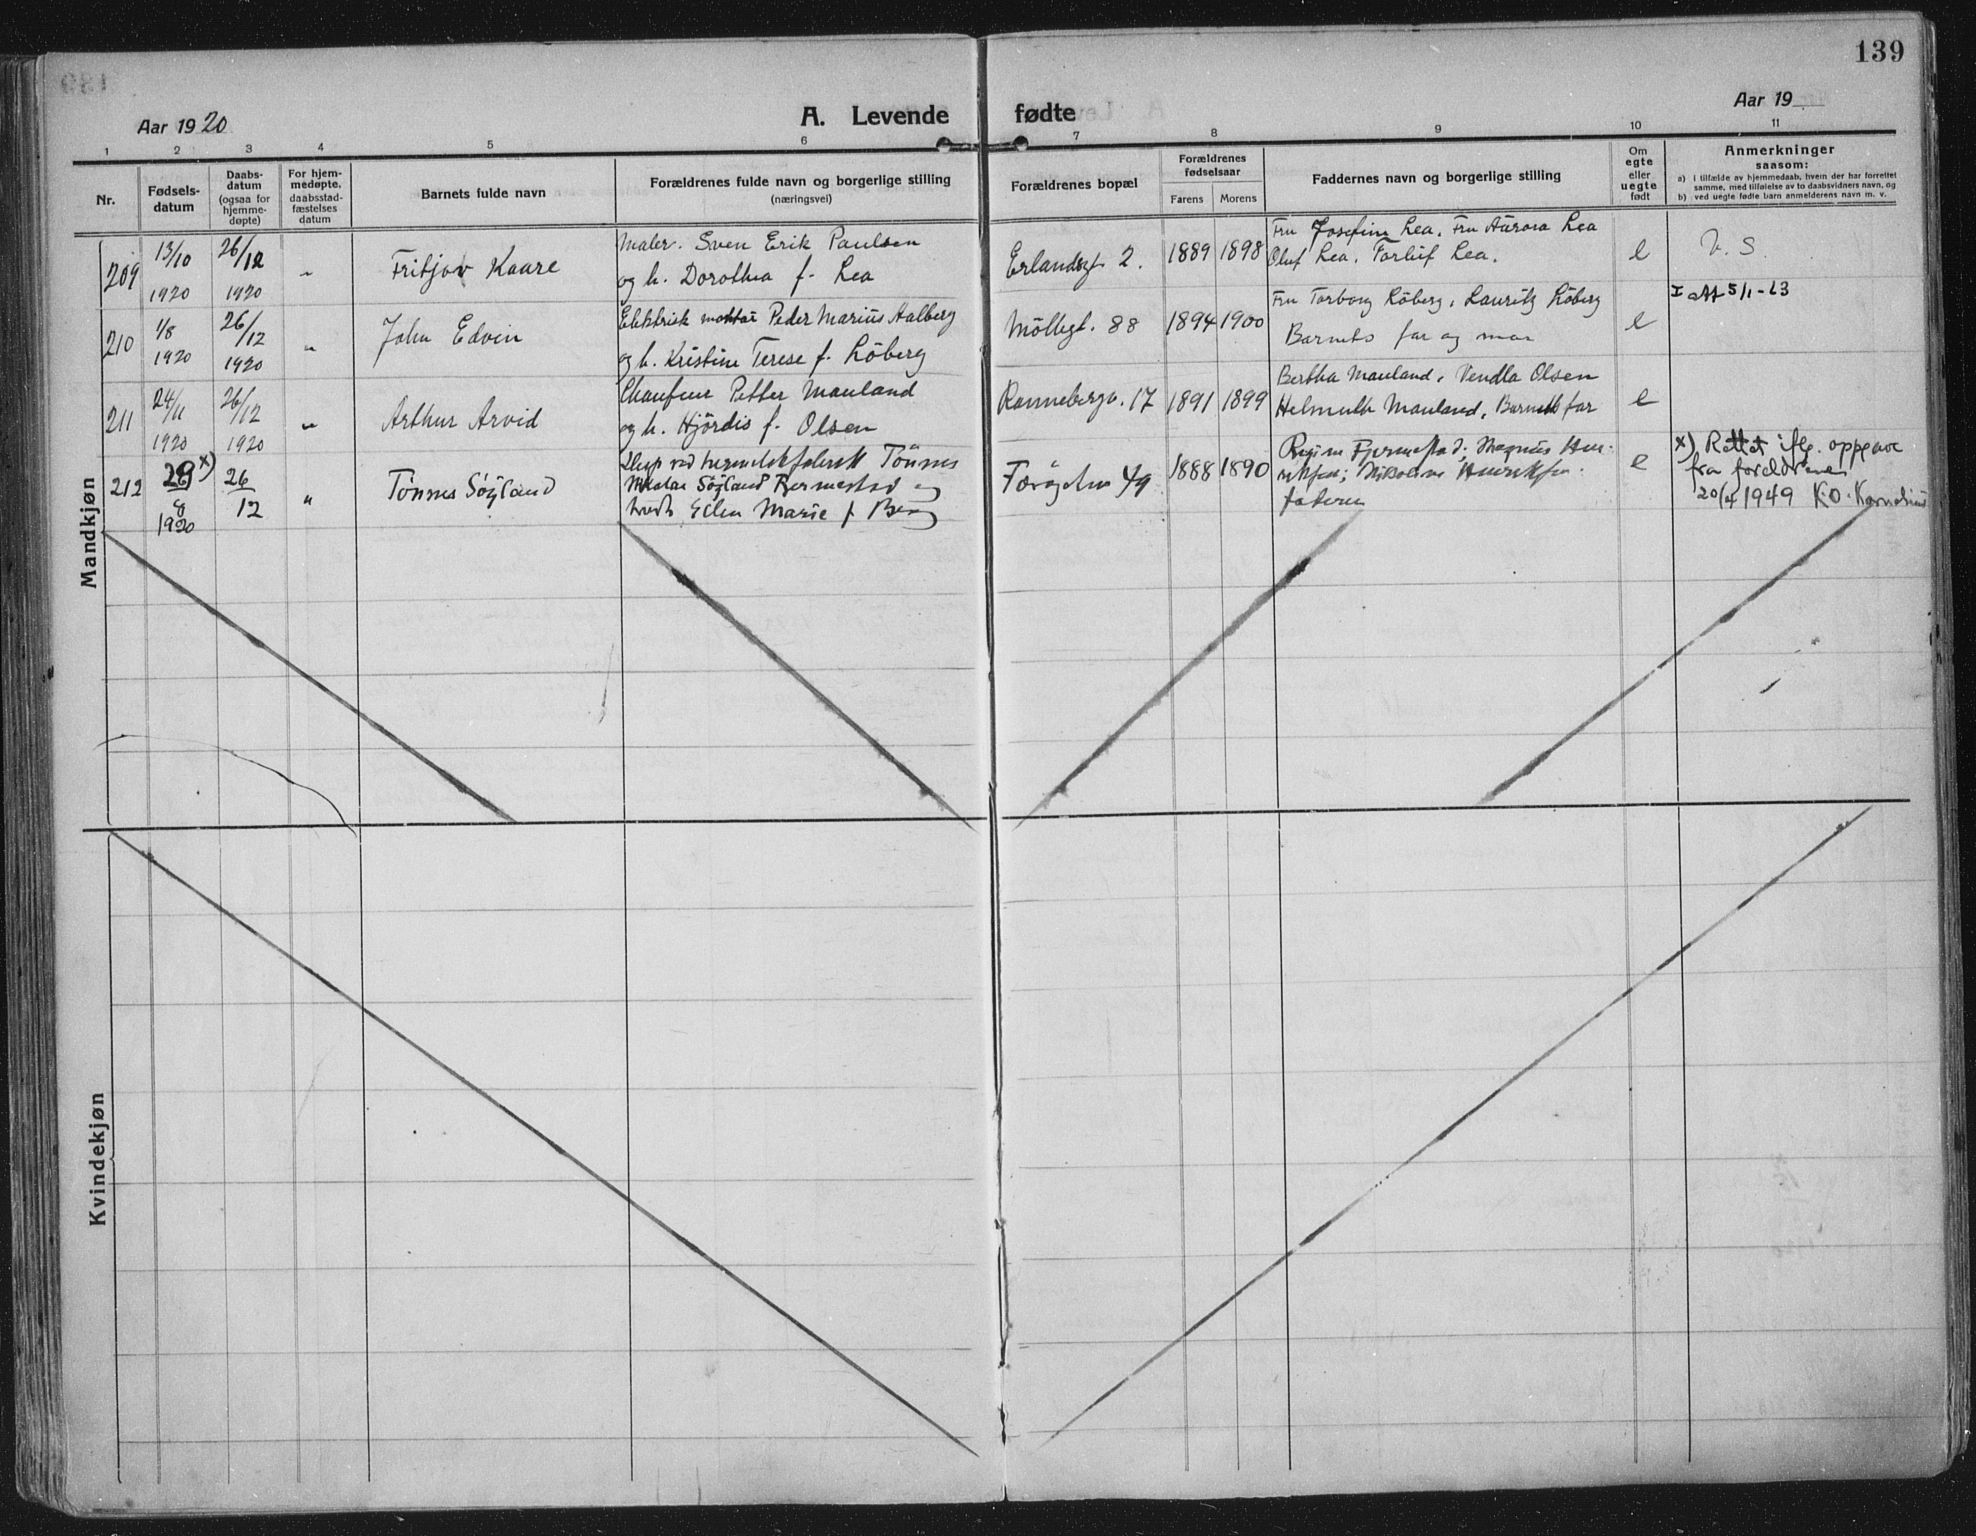 139
Aar 1920
A. Levende fødte
Aar 19
1 2 3 4 5 6 7 8 9 10 11
Nr.
Fødsels-
datum
Daabs-
datum
(ogsaa for
hjemme-
døpte)
For hjem-
medøpte,
daabsstad-
fæstelses
datum
Barnets fulde navn
Forældrenes fulde navn og borgerlige stilling
(næringsvei)
Forældrenes bopæl
Forældrenes
fødselsaar
Farens Morens
Faddernes navn og borgerlige stilling
Om
egte
eller
uegte
født
Anmerkninger
saasom:
a) i tilfælde av hjemmedaab, hvem der har forrettet
samme, med tilføielse av to daabsvidners navn, og
b) ved uegte fødte barn anmelderens navn m. v.
Mandkjøn
209
13/10
1920
26/12
1920
"
Fritjov Kaare
Maler. Sven Erik Paulsen
og h. Dorothea f. Lea
Erlandsgt. 2.
1889 1898
Fru Josefine Lea, Fru Aurora Lea
Oluf Lea, Torleif Lea.
e
V. S.
210
1/8
1920
26/12
1920
"
John Edvin
Elektrisk montør Peder Marius Aalberg
og h. Kristine Terese f. Löberg
Möllegt. 88
1894 1900
Fru Torborg Löberg, Lauritz Löberg
Barnets far og mor
e
I att 5/1-23
211
24/11
1920
26/12
1920
"
Arthur Arvid
Chaufeur Petter Mauland
og h. Hjördis f. Olsen
Rannebergv. 17
1891 1899
Bertha Mauland, Vendla Olsen
Helmuth Mauland, Barnets far
e
212
28 x)
8
1920
26
12
"
Tönnes Söyland
hermetikfabrikk Tönnes
Nikolai Söyland Fjermestad og
Marie f. Berg
49
1888 1890
Fjermestad; Magnus Hen-
riksen; Nikoline Henriksen.
faderen
e
x) Rettet iflg. oppgave
fra foreldrene
20/4 1949 K.O. Kornelius
Kvindekjøn